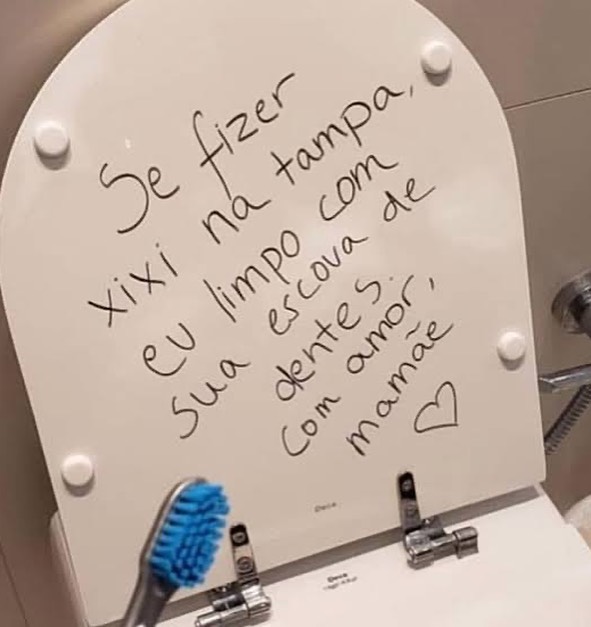 Se fizer
xixi na tampa,
eu limpo com
sua escova de
dentes.
com amor,
mamãe
♡
Deca
Deca